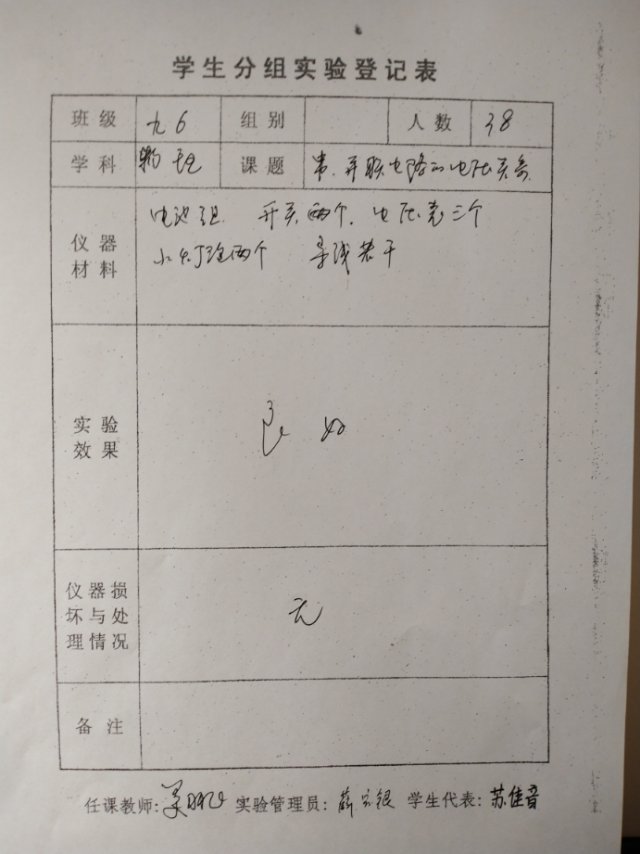 学生分组实验登记表
班级 九6 组别 人数 38
学科 物理 课题 串、并联电路的电压关系
仪器材料 电池组 开关两个、电压表三个
小灯泡两个 导线若干
实验效果 良好
仪器损坏与处理情况 无
备注
任课教师: 实验管理员: 学生代表: 苏佳音